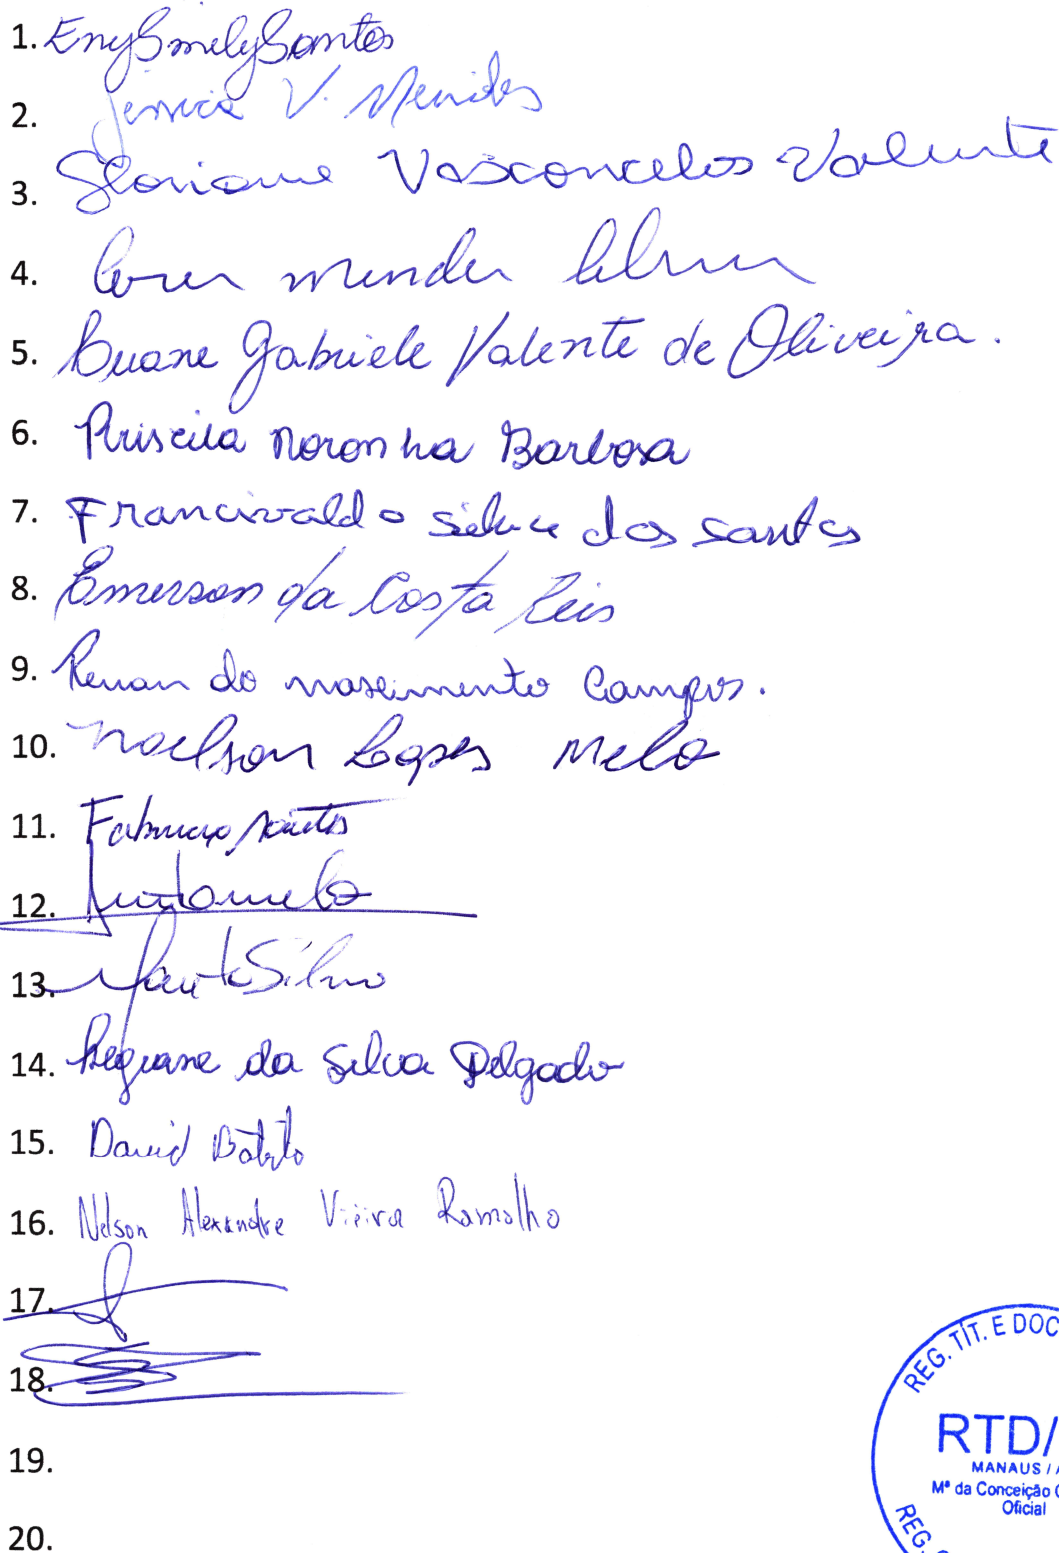 1. Eny Smily Santos
2. Jessica V. Mendes
3. Gloriane Vasconcelos Valente
4. mendes
5. Luane Gabriele Valente de Oliveira.
6. Priscila Noronha Barbosa
7. Francivaldo dos santos
8. Emerson da Costa Reis
9. Renan do nascimento Campos.
10. Noelson Lopes Melo
11. Fabricio Santos
12.
13. Silva
14. Regiane da Silva Delgado
15. David
16. Nelson Alexandre Vieira Ramalho
17.
18.
19.
20.
REG. TÍT. E DOC
RTD/
MANAUS /
Mª da Conceição
Oficial
REG.